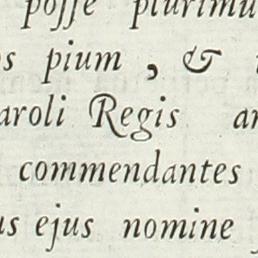 posse plurimu
os pium, &
aroli Regis ar
commendantes
us ejus nomine